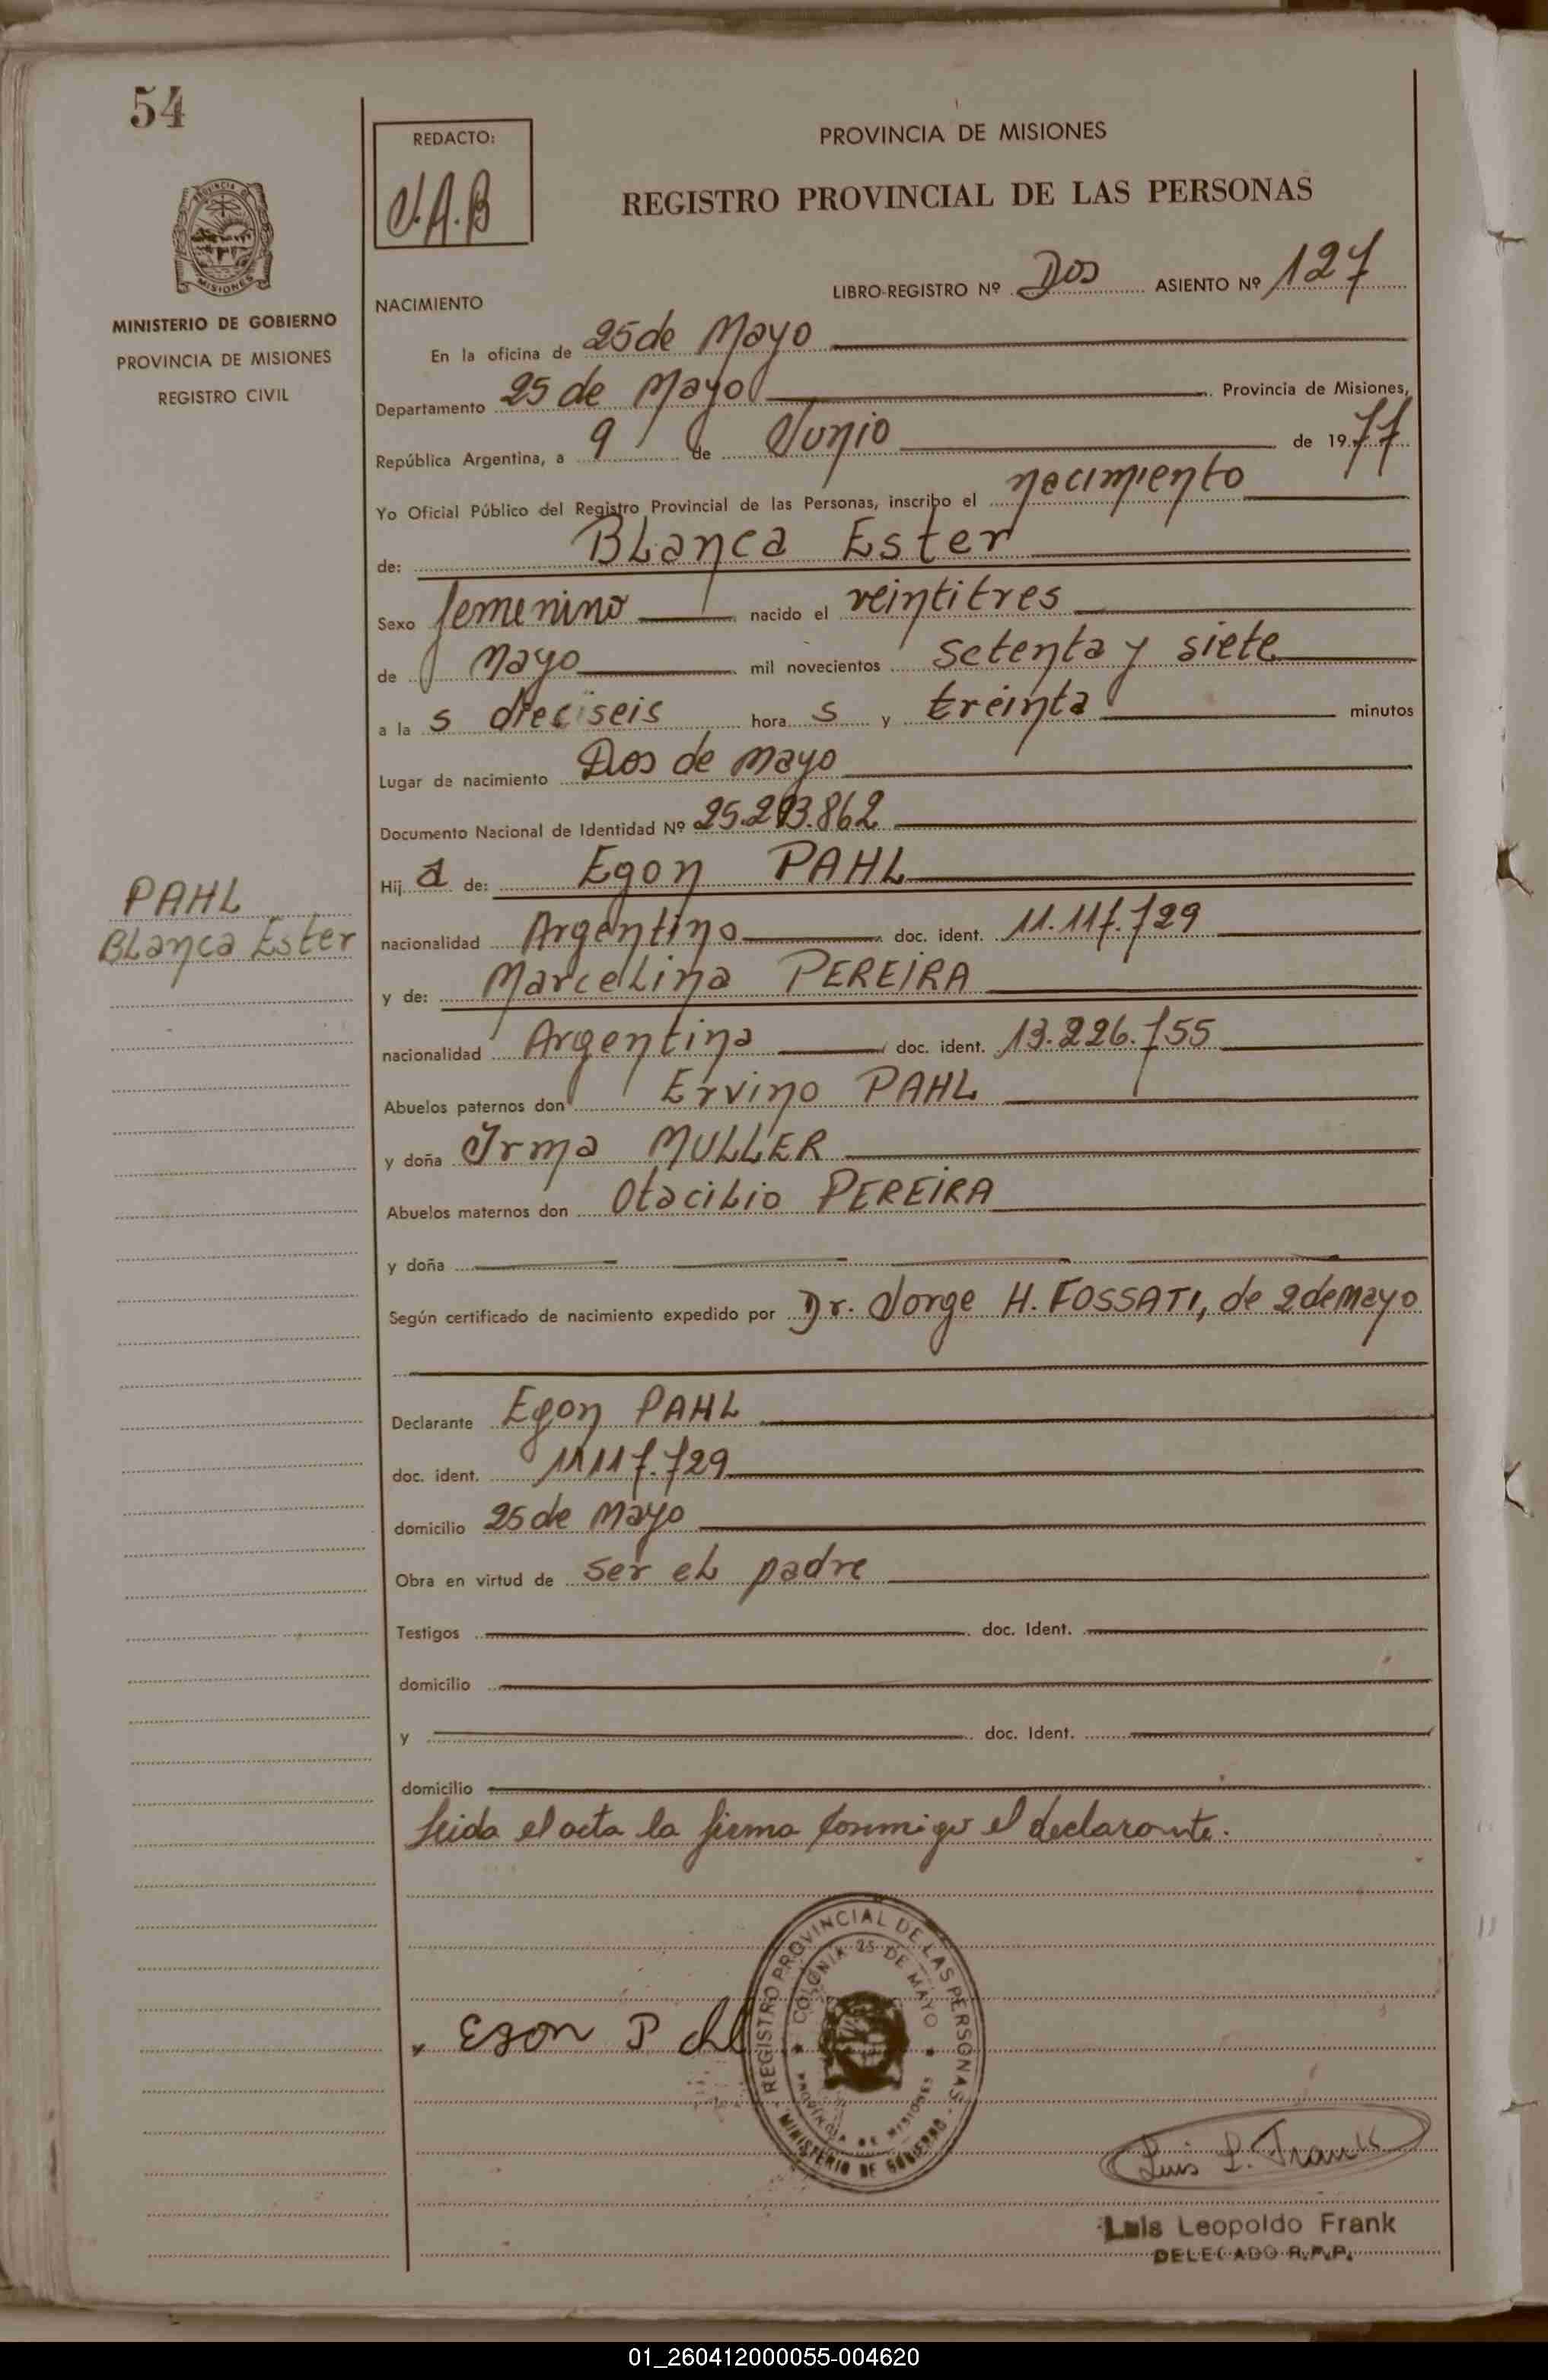 54
REDACTO:
V.A.B
PROVINCIA DE MISIONES
REGISTRO PROVINCIAL DE LAS PERSONAS
MINISTERIO DE GOBIERNO
PROVINCIA DE MISIONES
REGISTRO CIVIL
LIBRO-REGISTRO Nº Dos ASIENTO Nº 127
NACIMIENTO
En la oficina de 25 de Mayo
Departamento 25 de Mayo Provincia de Misiones,
República Argentina, a 9 de Junio de 1977
Yo Oficial Público del Registro Provincial de las Personas, inscribo el nacimiento
de: BLanca Ester
Sexo femenino nacido el veintitres
de Mayo mil novecientos setenta y siete
a la s dieciseis hora s y treinta minutos
Lugar de nacimiento Dos de mayo
Documento Nacional de Identidad Nº
Hij a de: Egon PAHL
PAHL
BLanca Ester
nacionalidad Argentino doc. ident. 11.117.729
y de: MarceLina PEREIRA
nacionalidad Argentina doc. ident. 13.226.755
Abuelos paternos don Ervino PAHL
y doña Irma MULLER
Abuelos maternos don OtaciLio PEREIRA
y doña
Según certificado de nacimiento expedido por Dr. Jorge H. FOSSATI, de 2 de mayo
Declarante Egon PAHL
doc. ident. 11117.729
domicilio 25 de Mayo
Obra en virtud de ser eL padre
Testigos doc. Ident.
domicilio
y doc. Ident.
domicilio
Leida el acta la firma conmigo el declarante.
REGISTRO PROVINCIAL DE LAS PERSONAS
COLONIA 25 DE MAYO
PROVINCIA DE MISIONES
MINISTERIO DE GOBIERNO
x Egon P ahl
Luis L. Frank
Luis Leopoldo Frank
DELEGADO R.P.P.
01_260412000055-004620